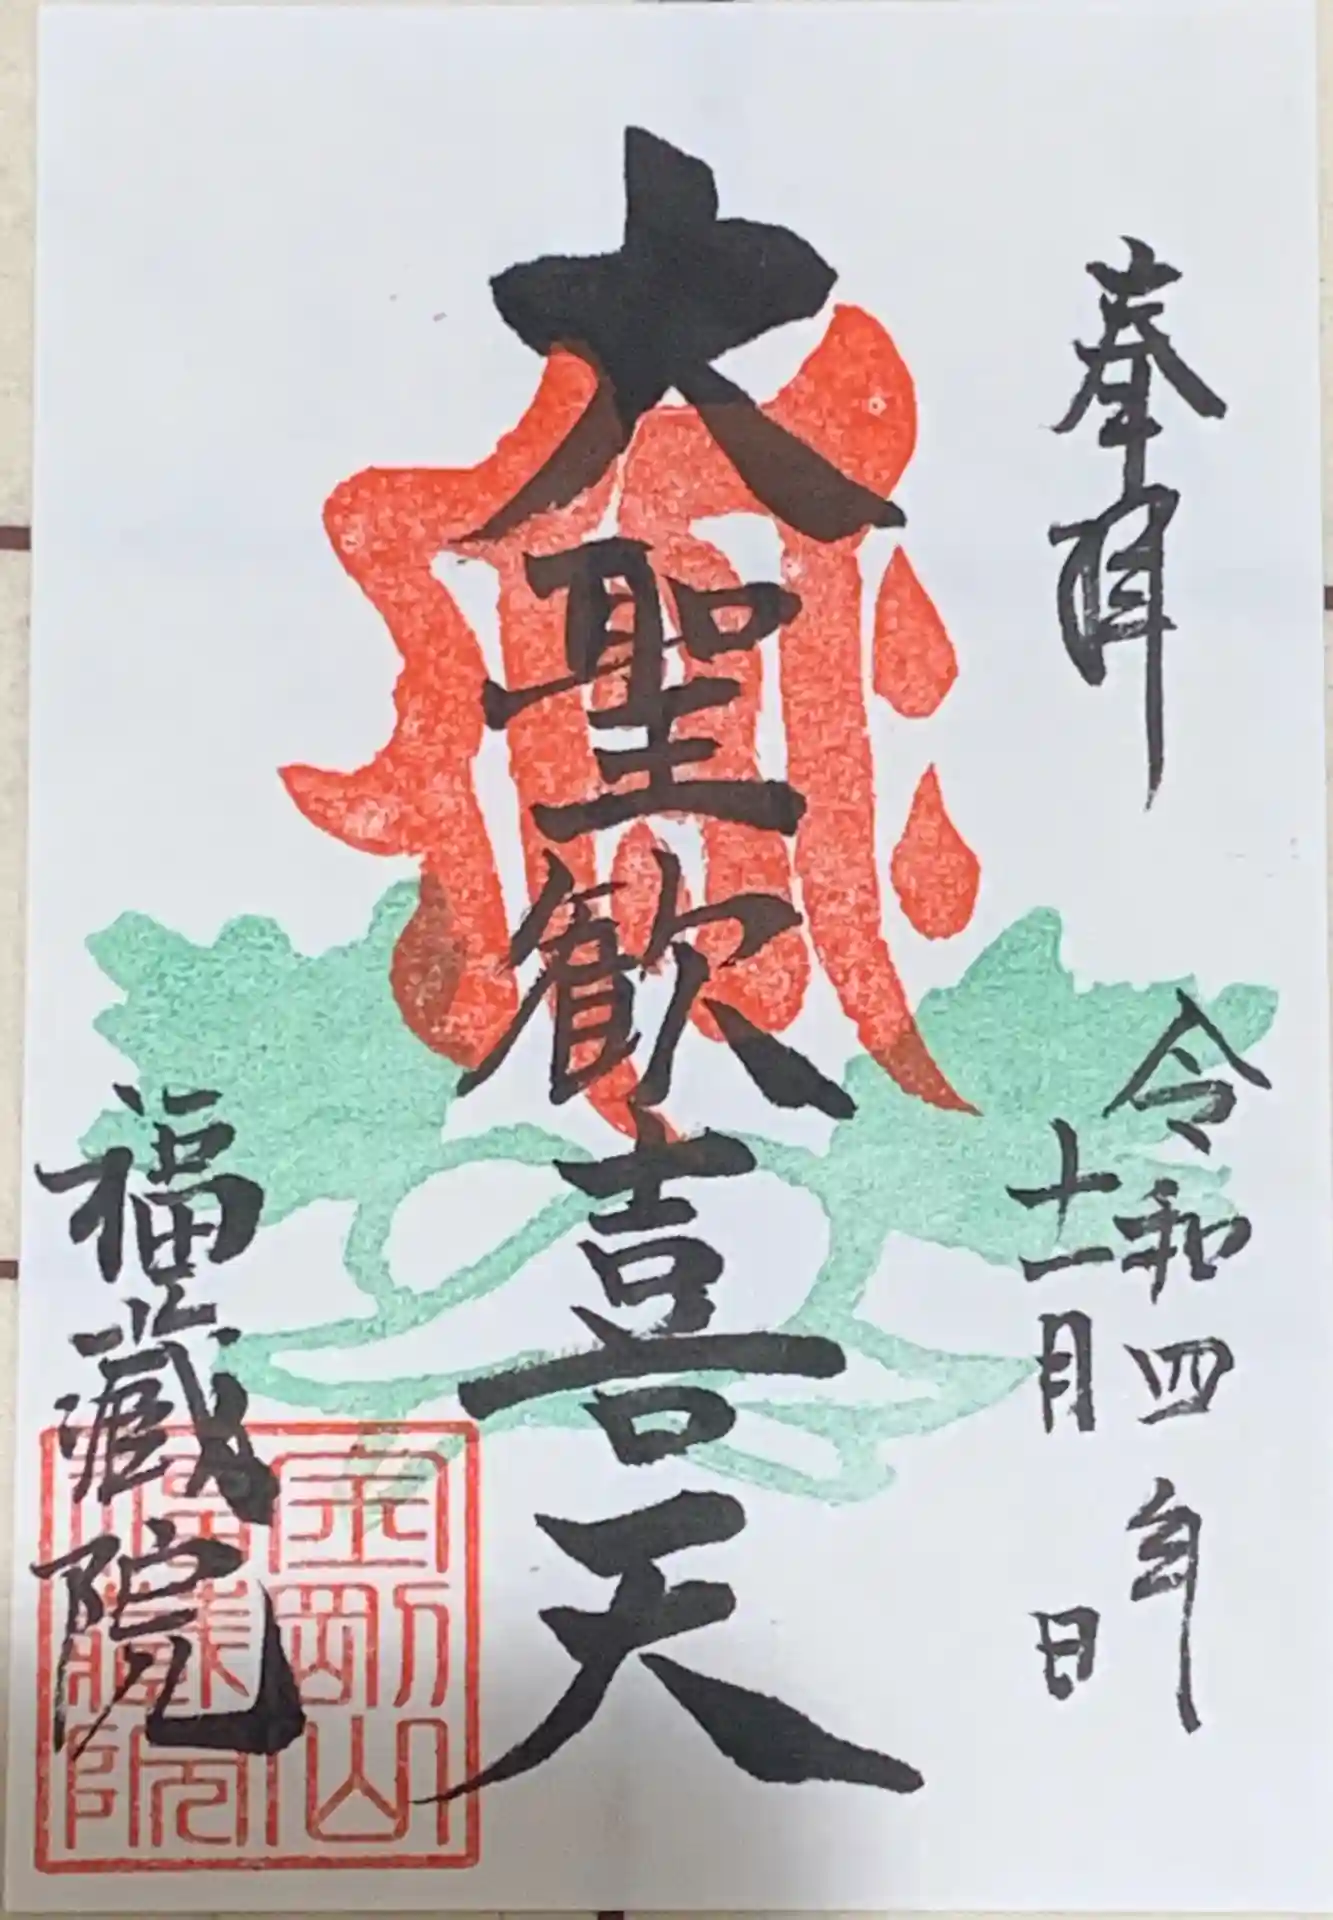 奉拝
令和四年
十一月 日
大聖歓喜天
福蔵院
金剛山
福蔵院